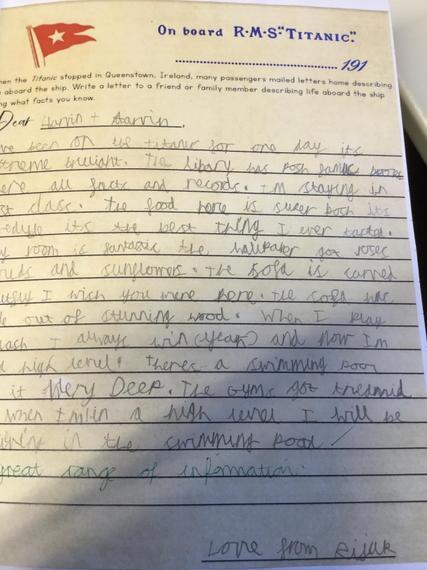 On board R·M·S "TITANIC".
191
en the Titanic stopped in Queenstown, Ireland, many passengers mailed letters home describing
aboard the ship. Write a letter to a friend or family member describing life aboard the ship
g what facts you know.
Dear + 
ve been on the titanic for one day its
treme brilliant. The libary has posh
ere all facts and records. I'm staying in
st class. The food here is super posh its
its the best thing I ever tasted.
room is fantastic the got roses
and sunflowers. The sofa is carved
I wish you were here. the sofa has
out of stunning wood. When I play
I always win (yeah) and now Im
high level. theres a swimming pool
it Very Deep. The Gyms got
when I'm in a high level I will be
in the swimming pool
great range of information.
Love from